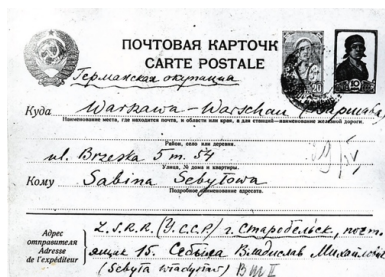 ПОЧТОВАЯ КАРТОЧК
CARTE POSTALE
Германская окупация
Куда Warszawa - Warschau
Наименование места, где находится почта, и области или края, а для станций—наименование железной дороги.
Район, село или деревня.
ul. Brzeska 5 m. 54
Улица, № дома и квартиры
Кому Sabina Sebyłowa
Подробное наименование адресата.
Адрес отправителя
Adresse de l'expéditeur
Z.S.R.R. (У.С.С.Р) г. Старобельск, почт.
ящик 15 Себыла Владислав
(Sebyła Władysław)